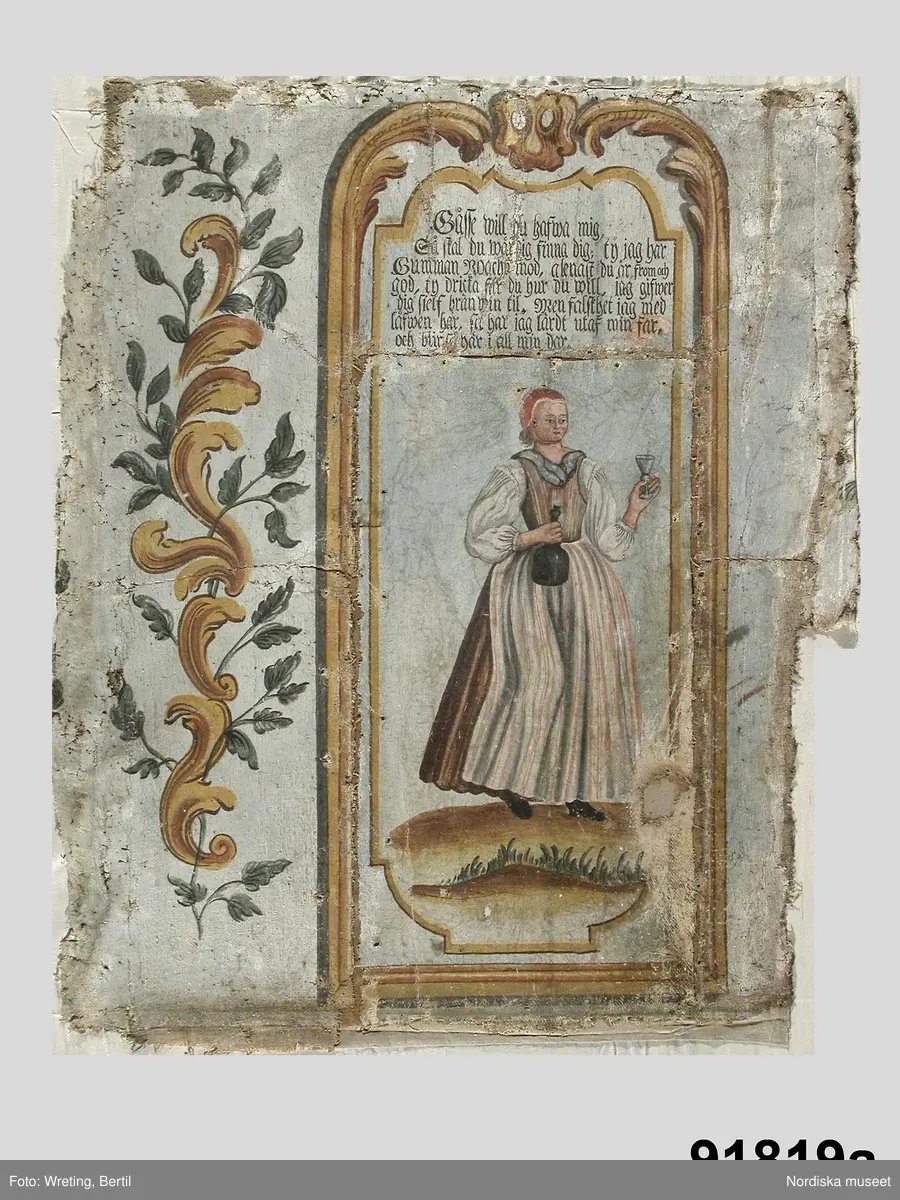 Gåsse will du hafwa mig
Så skal du wärdig finna dig, ty jag har
Gumman Machs mod, alenast du är from och
god, ty dricka får du hur du will, jag gifwer
dig sielf bränwin til. Men falskhet jag med
har, så har jag lärdt utaf min far,
och blir så här i all min dar.
91819a
Foto: Wreting, Bertil
Nordiska museet